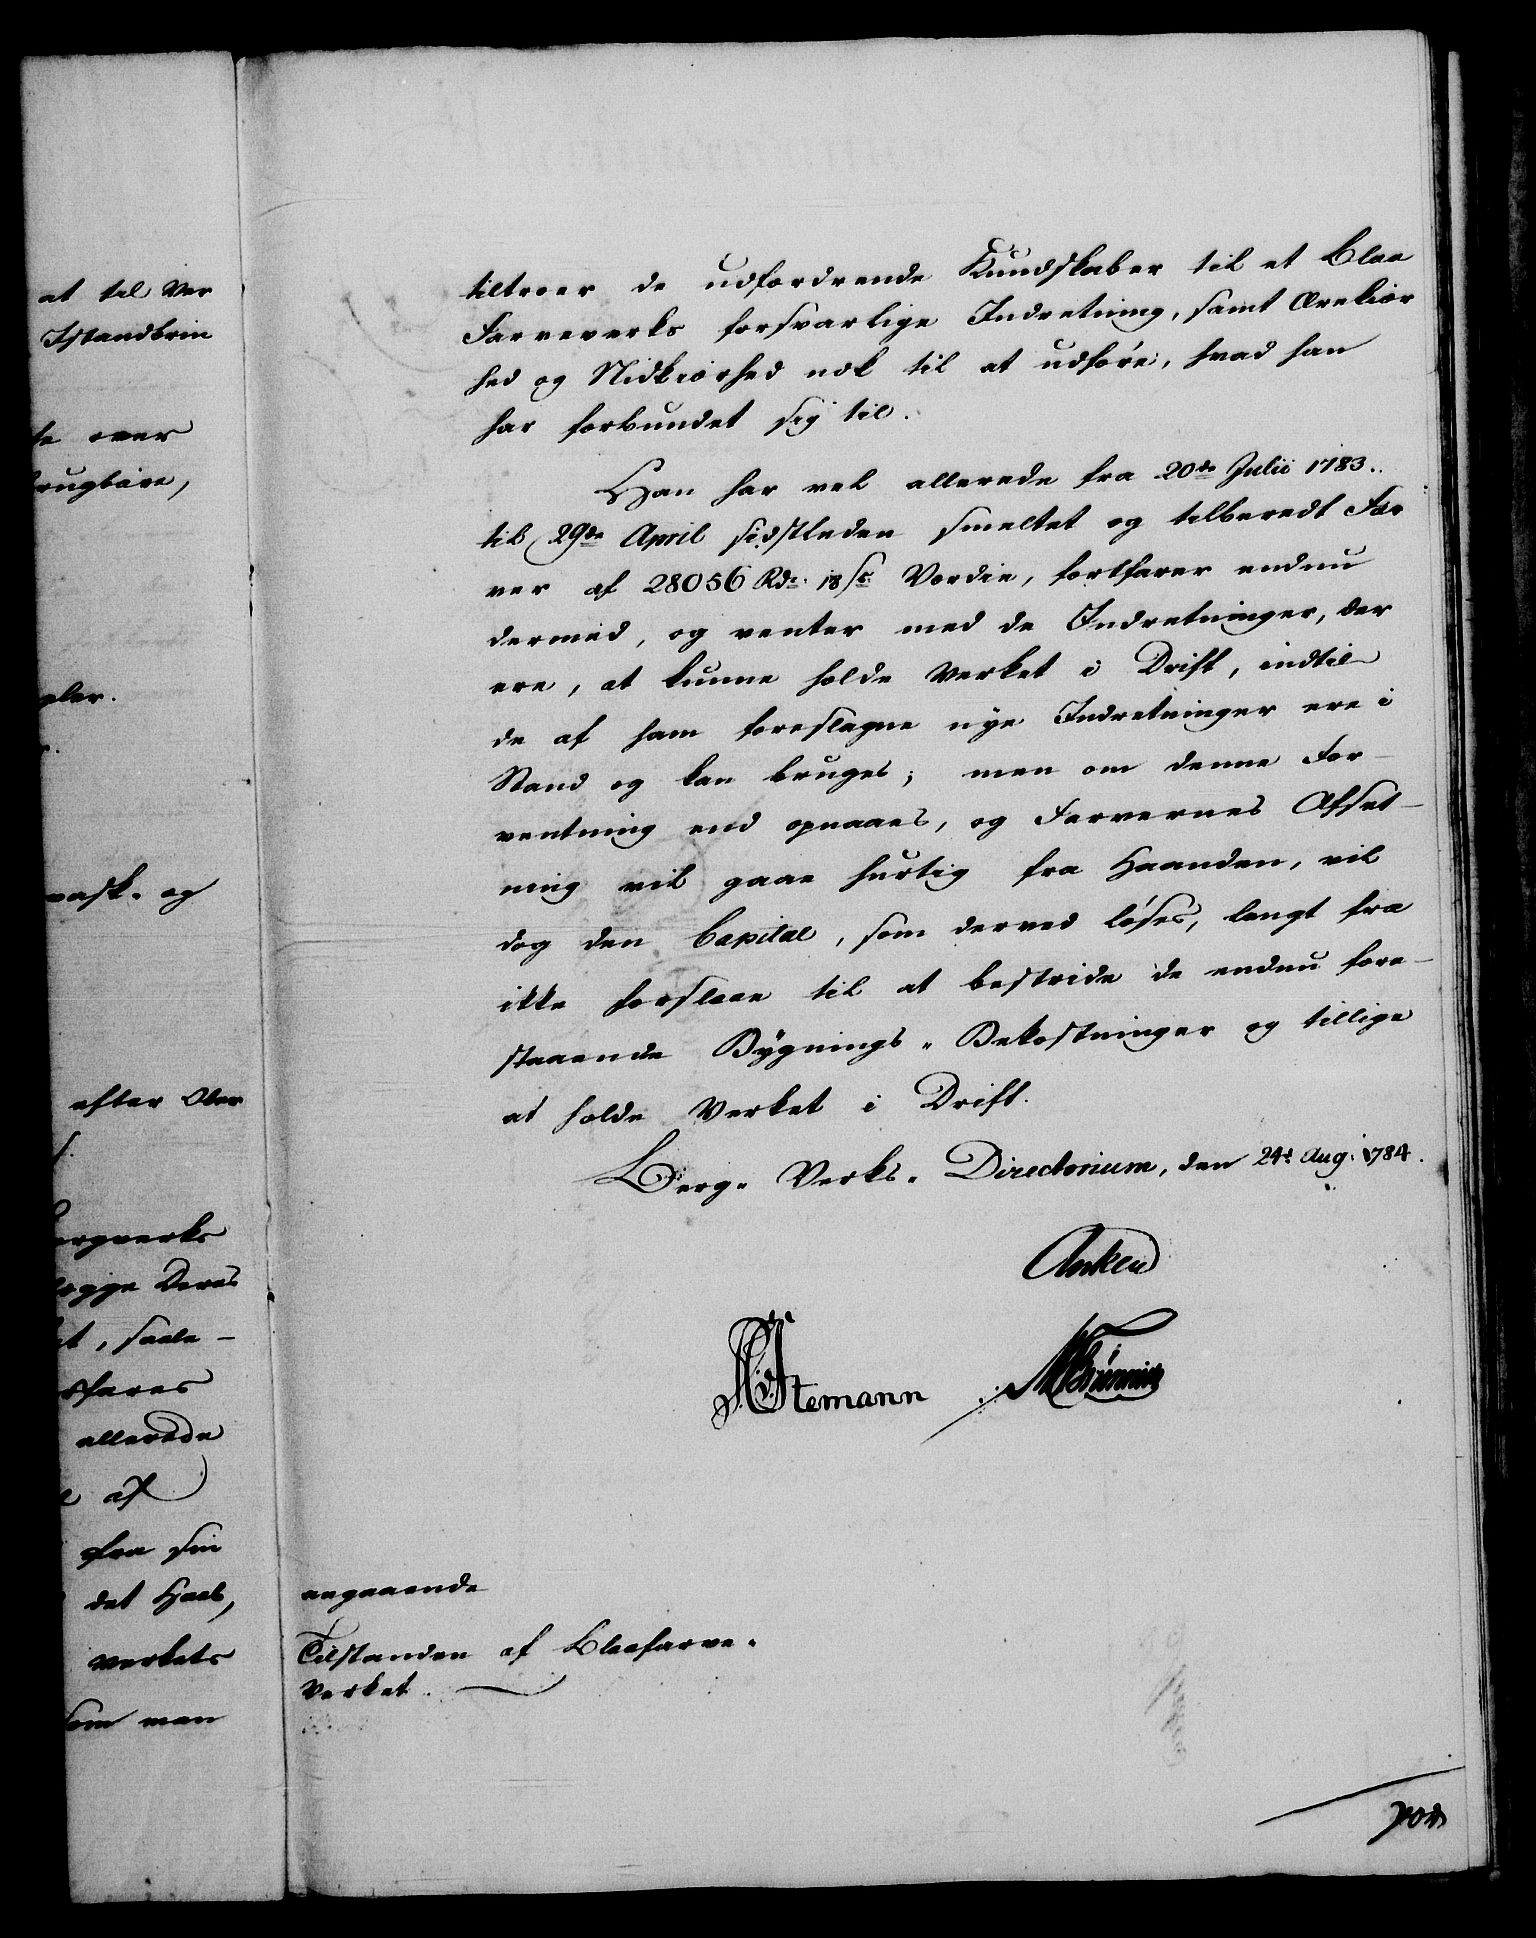 at til Ver
Istandbrin
over
rugbare,
gler.
vask- og
efter Ober
ergverks
legge Deres
et, saale-
allerede
af
fra sin
det Haab,
verkets
som man
tiltroer de udfordrende Kundskaber til et Blaa
Farveverks forsvarlige Indretning, samt Ærekiær
hed og Nidkiærhed nok til at udføre, hvad han
har forbundet sig til.
Han har vel allerede fra 20de Julii 1783.
til 29de April sidstleden smeltet og tilberedt Far
ver af 28056 Rdr. 18 s. Værdie, fortfarer endnu
dermed, og venter med de Indretninger, der
ere, at kunne holde Verket i Drift, indtil
de af ham foreslagne nye Indretninger ere i
Stand og kan bruges; men om denne For-
ventning end opnaaes, og Farvernes Afsæt-
ning vil gaae hurtig fra Haanden, vil
dog den Capital, som derved løses, langt fra
ikke forslaae til at bestride de endnu fore-
staaende Bygnings-Bekostninger og tillige
at holde Verket i Drift.
Berg-Verks-Directorium, den 24d Aug: 1784.
Anker
Stemann MBrünnich
angaaende
Tilstanden af Blaafarve-
Verket.